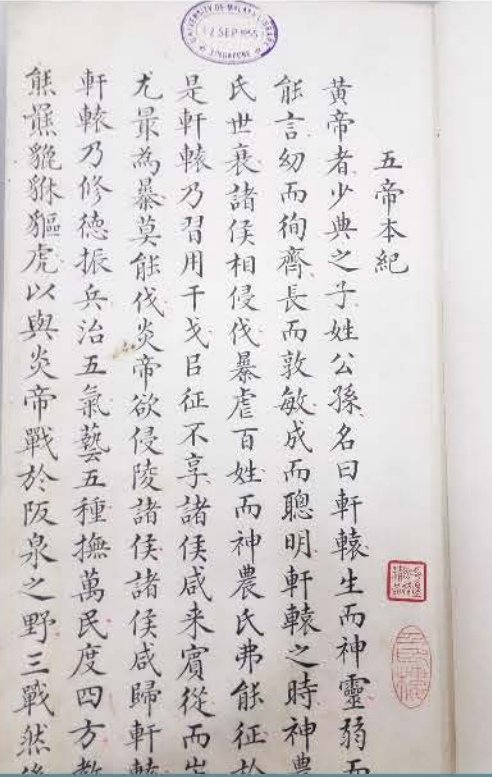 UNIVERSITY OF MALAYA LIBRARY
SEP 1955
SINGAPORE
五帝本紀
黃帝者少典之子姓公孫名曰軒轅生而神靈弱而
能言幼而徇齊長而敦敏成而聰明軒轅之時神農
氏世衰諸侯相侵伐暴虐百姓而神農氏弗能征於
是軒轅乃習用干戈㠯征不享諸侯咸来賓從而蚩
尤最為暴莫能伐炎帝欲侵陵諸侯諸侯咸歸軒轅
軒轅乃修德振兵治五氣藝五種撫萬民度四方教
熊羆貔貅貙虎以與炎帝戰於阪泉之野三戰然後